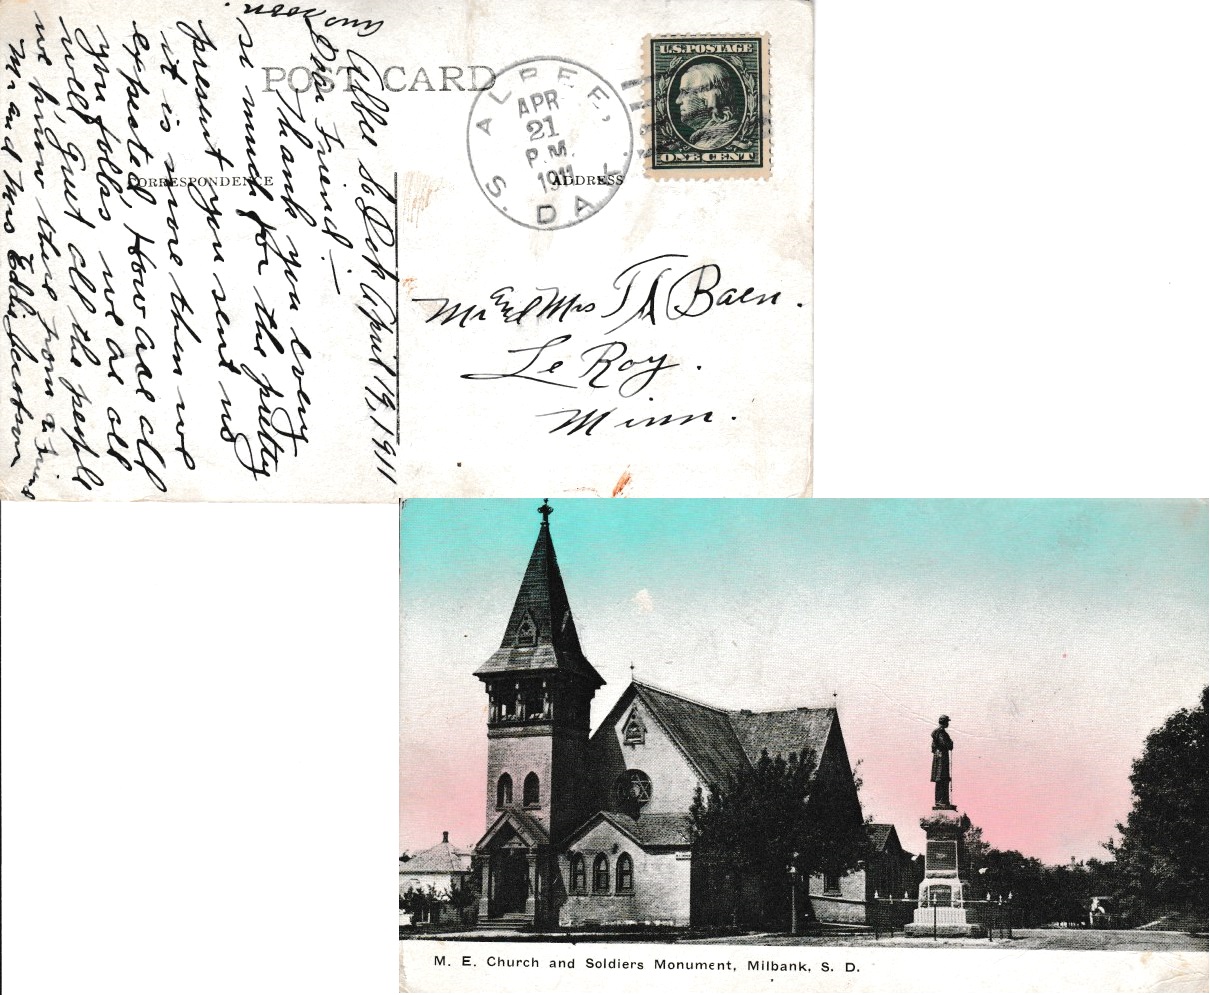 POST CARD
CORRESPONDENCE
ADDRESS
U.S. POSTAGE
ONE CENT
ALPEE,
S. DAK.
APR
21
P.M.
1911
Mr and Mrs T A Baen.
Le Roy.
Minn.
So Dak April 19, 1911
Dear Friend.—
Thank you very
so much for the pretty
present you sent us
it is more then we
expected, How are all
you folks, we are all
well, Greet all the people
we know there from
Mr and Mrs Eddie
M. E. Church and Soldiers Monument, Milbank, S. D.